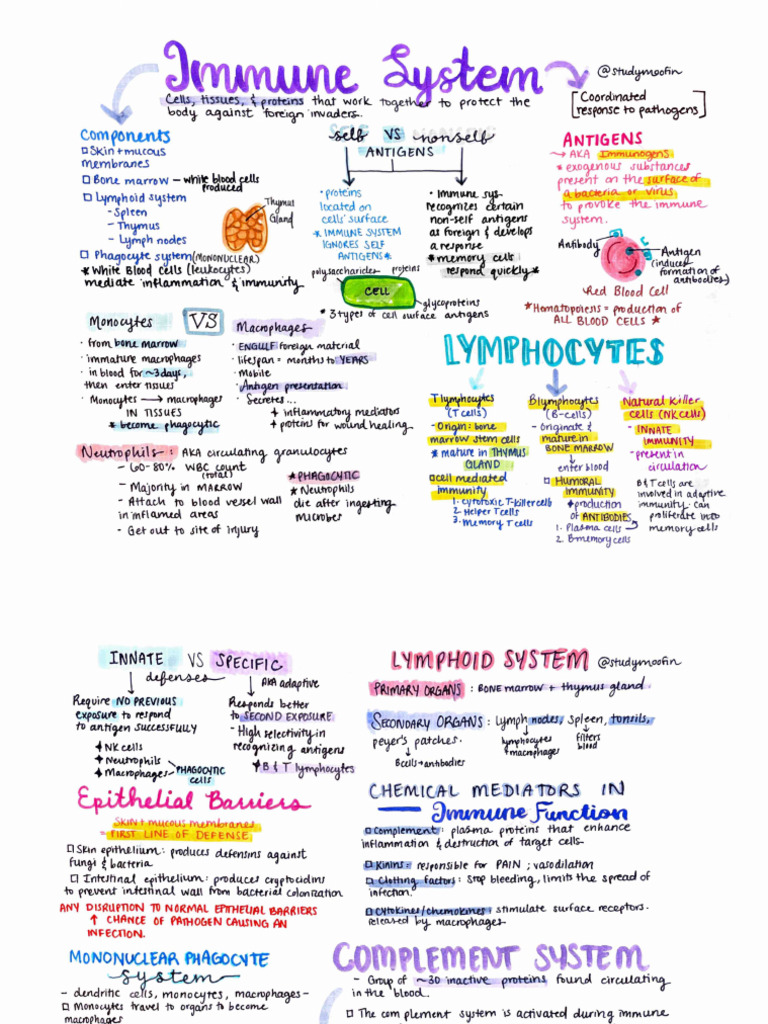 Immune System
@studymoofin
Cells, tissues, & proteins that work together to protect the
body against foreign invaders.
[Coordinated
response to pathogens]
Components
□ Skin + mucous
membranes
□ Bone marrow – white blood cells
produced
□ Lymphoid system
- Spleen
- Thymus
- Lymph nodes
Thymus
Gland
□ Phagocyte system (MONONUCLEAR)
* White Blood Cells (leukocytes)
mediate inflammation & immunity
self VS nonself
ANTIGENS
• proteins
located on
cells' surface
* IMMUNE SYSTEM
IGNORES SELF
ANTIGENS *
• Immune sys-
recognizes certain
non-self antigens
as foreign & develops
a response
* memory cells
respond quickly *
polysaccharides
proteins
CELL
glycoproteins
* 3 types of cell surface antigens
ANTIGENS
→ AKA Immunogens
* exogenous substances
present on the surface of
a bacteria or virus
to provoke the immune
system.
Antibody
Antigen
(induces
formation of
antibodies)
Red Blood Cell
* Hematopoiesis = production of
ALL BLOOD CELLS *
Monocytes VS Macrophages
• from bone marrow
• immature macrophages
• in blood for ~3 days,
then enter tissues
• Monocytes → macrophages
IN TISSUES
* become phagocytic
• ENGULF foreign material
• lifespan = months to YEARS
• Mobile
• Antigen presentation
• Secretes...
+ inflammatory mediators
+ proteins for wound healing
Neutrophils : AKA circulating granulocytes
- 60-80% WBC count
(total)
- Majority in MARROW
- Attach to blood vessel wall
in inflamed areas
- Get out to site of injury
* PHAGOCYTIC
* Neutrophils
die after ingesting
microbes
LYMPHOCYTES
T lymphocytes
(T cells)
- Origin: bone
marrow stem cells
* mature in THYMUS
GLAND
□ cell mediated
immunity
1. cytotoxic T-killer cells
2. Helper T cells
3. Memory T cells
B lymphocytes
(B-cells)
- originate &
mature in
BONE MARROW
↓
enter blood
□ HUMORAL
IMMUNITY
+ production
of ANTIBODIES
1. Plasma cells
2. B-memory cells
Natural Killer
cells (NK cells)
- INNATE
IMMUNITY
- present in
circulation
B & T cells are
involved in adaptive
immunity. can
proliferate into
memory cells
INNATE VS SPECIFIC
defenses
AKA adaptive
Require NO PREVIOUS
exposure to respond
to antigen SUCCESSFULLY
+ NK cells
+ Neutrophils
+ Macrophages
PHAGOCYTIC
cells
Responds better
to SECOND EXPOSURE
- High selectivity in
recognizing antigens
+ B & T lymphocytes
LYMPHOID SYSTEM @studymoofin
PRIMARY ORGANS : BONE marrow + thymus gland
SECONDARY ORGANS : Lymph nodes, spleen, tonsils,
peyer's patches.
lymphocytes
+ macrophages
filters
blood
B cells → antibodies
Epithelial Barriers
Skin + mucous membranes
= FIRST LINE OF DEFENSE
□ Skin epithelium: produces defensins against
fungi & bacteria
□ Intestinal epithelium: produces cryptocidins
to prevent intestinal wall from bacterial colonization
ANY DISRUPTION TO NORMAL EPITHELIAL BARRIERS
↑ CHANCE OF PATHOGEN CAUSING AN
INFECTION.
CHEMICAL MEDIATORS IN
Immune Function
□ Complement: plasma proteins that enhance
inflammation & destruction of target cells-
□ Kinins: responsible for PAIN ; vasodilation
□ Clotting Factors: Stop bleeding, limits the spread of
infection.
□ Cytokines/chemokines: stimulate surface receptors.
released by macrophages
MONONUCLEAR PHAGOCYTE
System
- dendritic cells, monocytes, macrophages-
□ Monocytes travel to organs to become
macrophages
COMPLEMENT SYSTEM
- Group of ~30 inactive proteins found circulating
in the blood.
□ The complement system is activated during immune